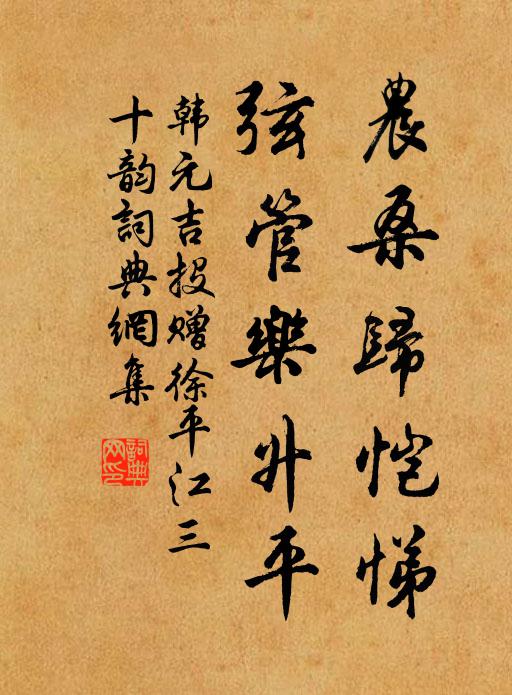 農桑歸恺悌
弦管樂升平
韩元吉投赠徐平江三
十韵詞典網集
詞典网印